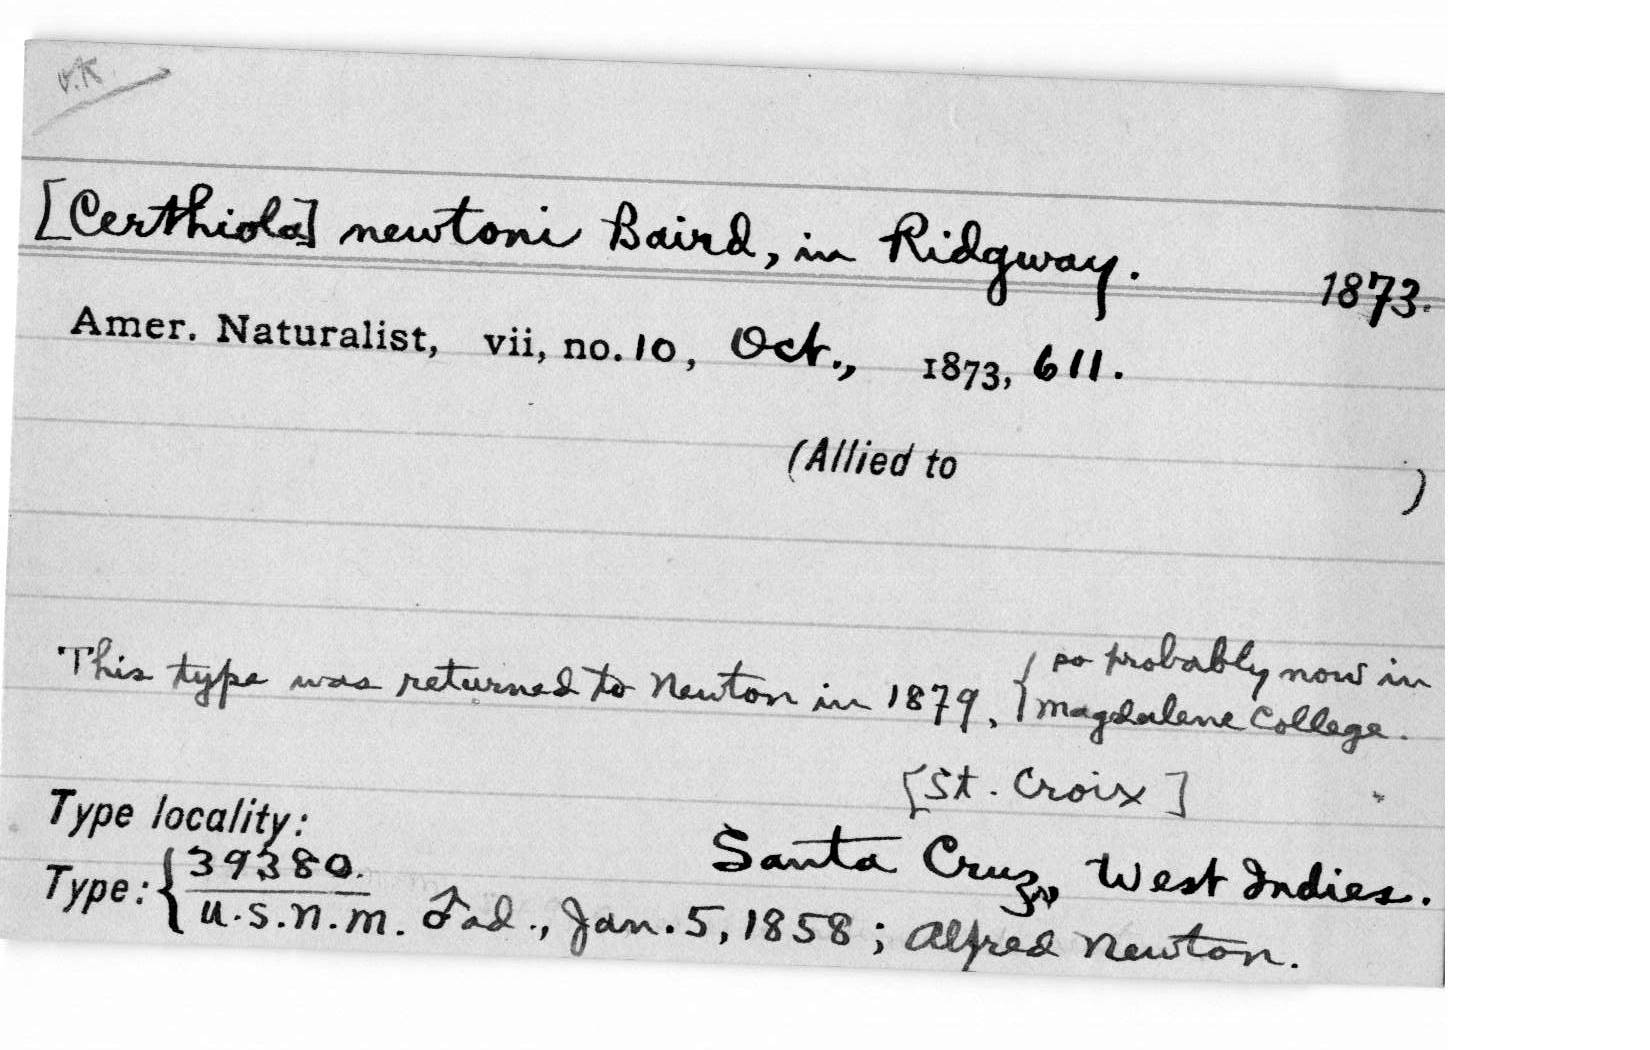 O.K.
[Certhiola] newtoni Baird, in Ridgway. 1873.
Amer. Naturalist, vii, no. 10, Oct., 1873, 611.
(Allied to )
This type was returned to Newton in 1879, { so probably now in
Magdalene College.
[St. Croix]
Type locality:
Santa Cruz, West Indies.
Type: { 39380.
U.S.N.M. ♂ ad., Jan. 5, 1858; Alfred Newton.